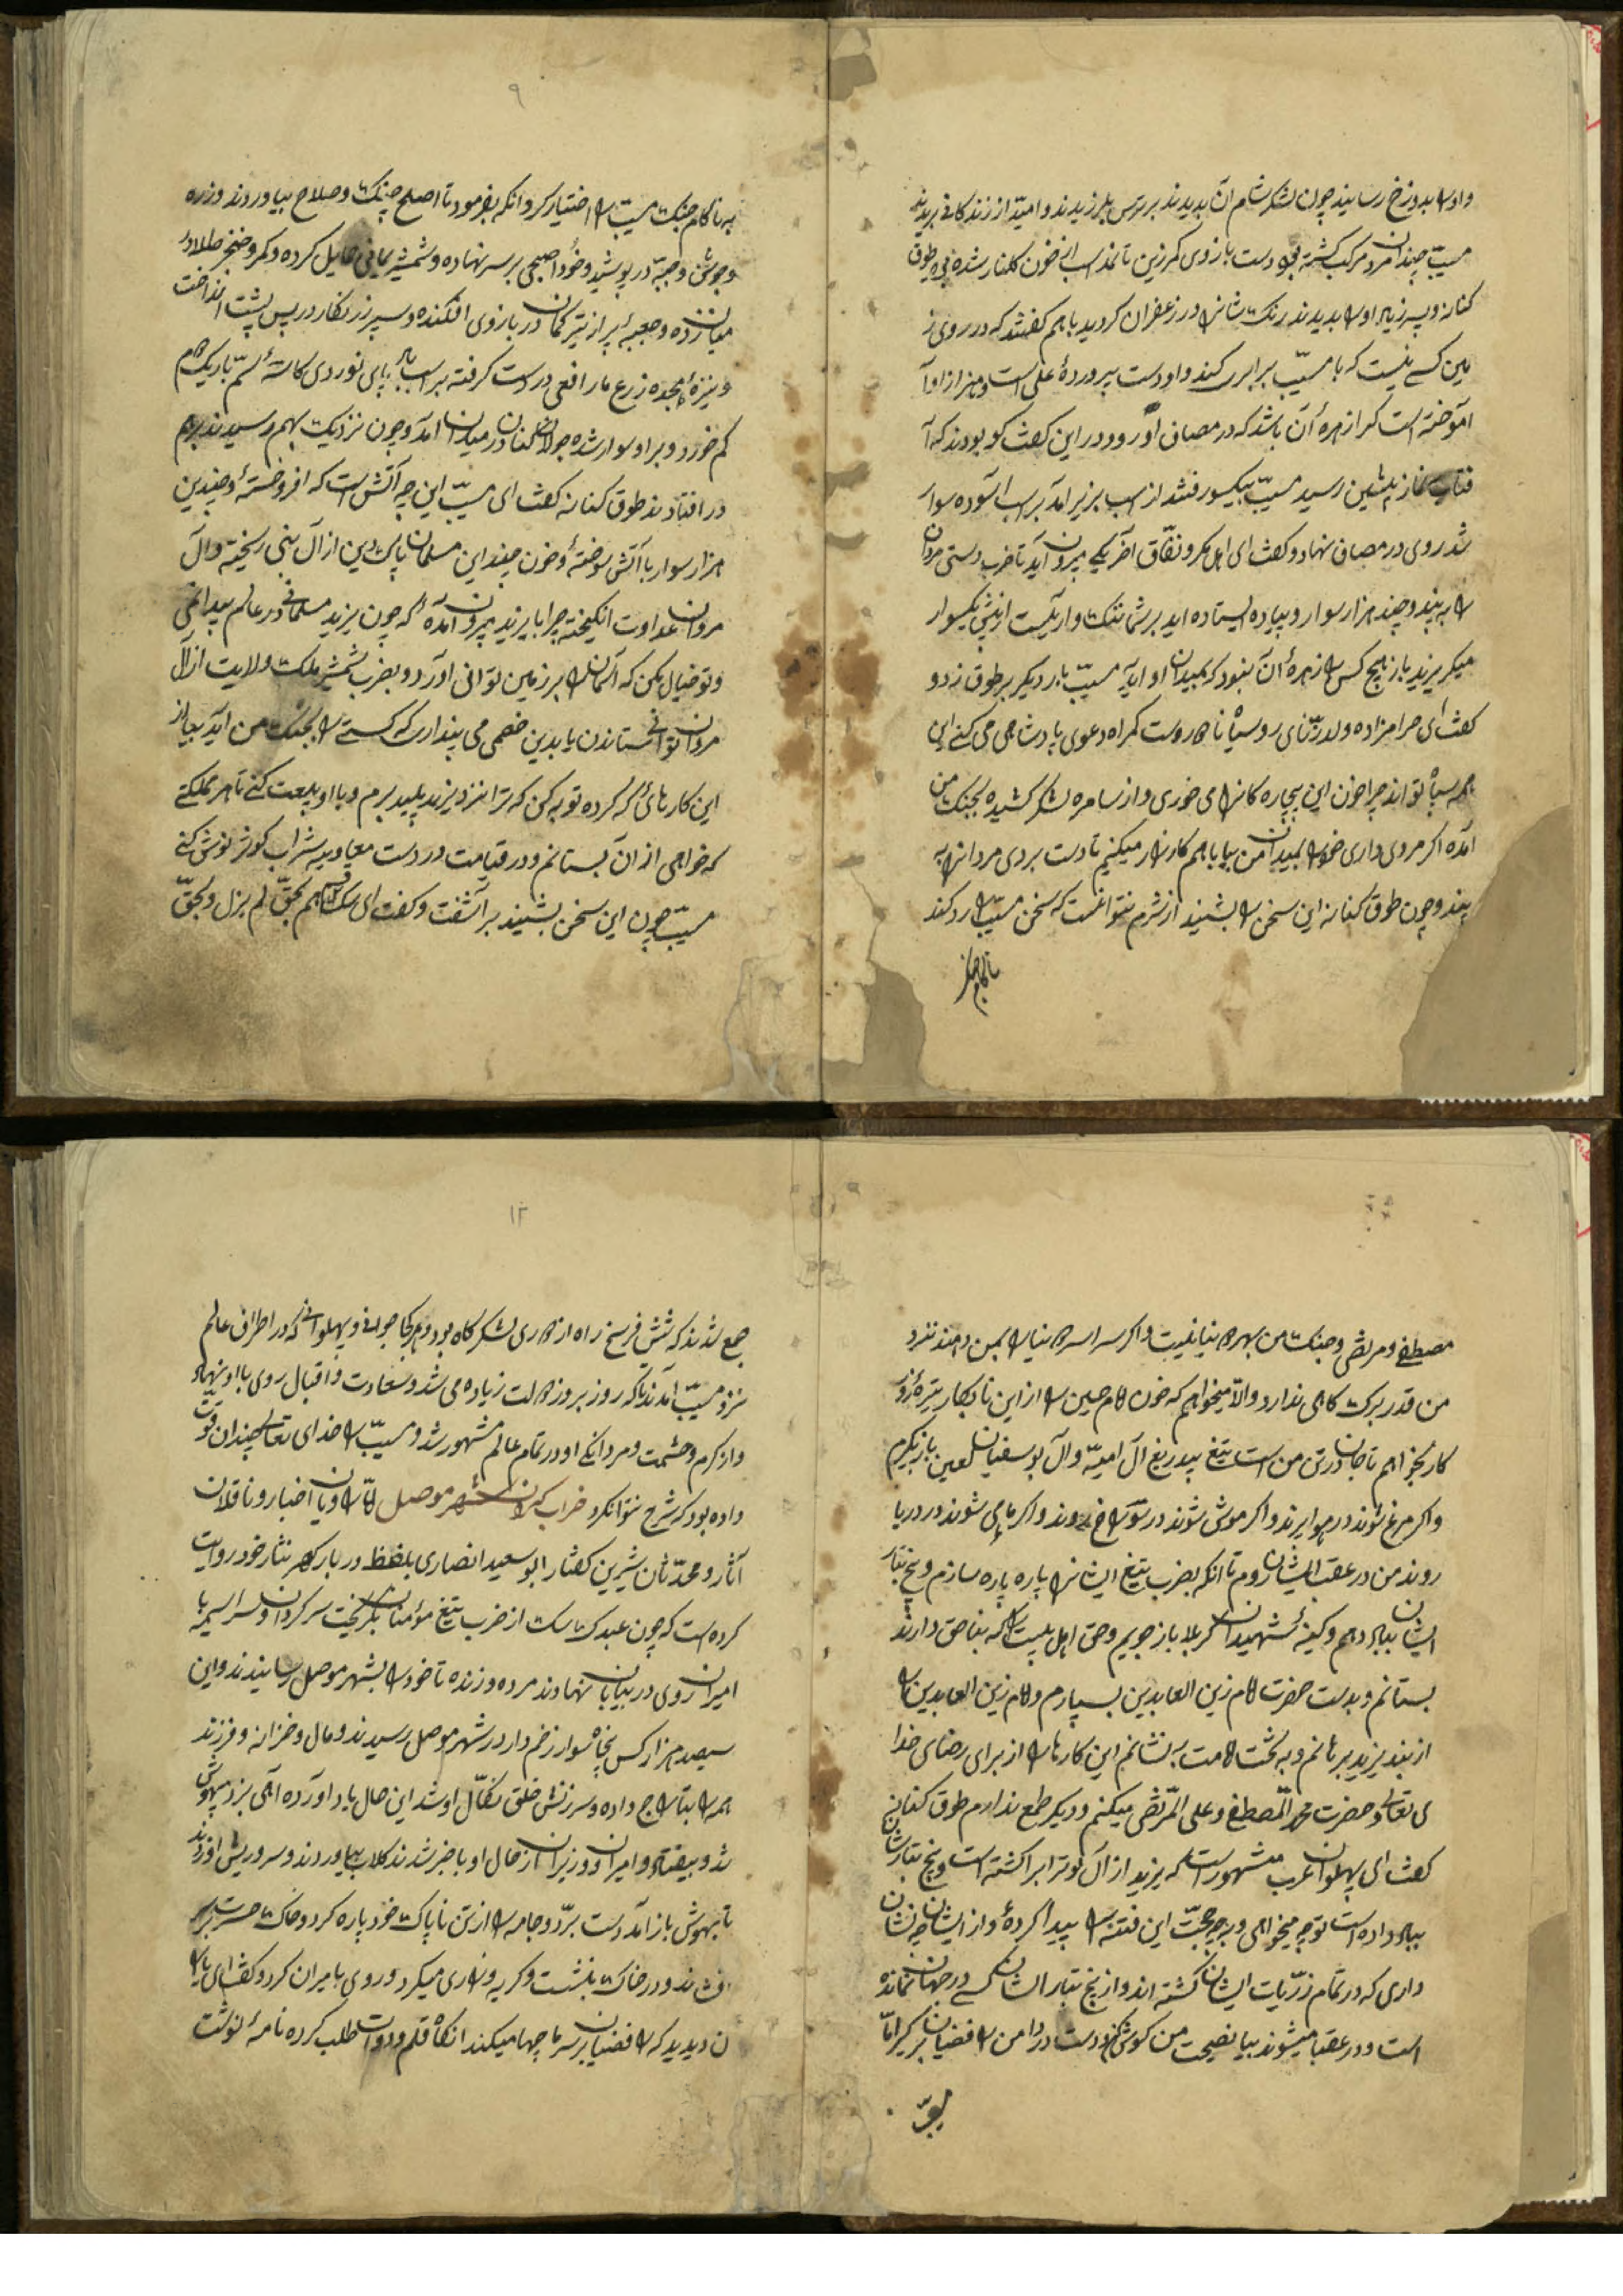 واورا بدوزخ رسانید چون لشکر شام آن بدیدند بر ترس بلرزیدند وامید از زندکانی بریدند
مسیّب چندان مرد مرکب کشته بود دست بازوی کمر زین تا نمد اسب از خون کلنار شده بود طوق
کنانه وپسر زیاد اورا بدیدند رنک شانرا در زعفران کردید باهم کفتند که در روی ز
مین کسی نیست که با مسیّب برابری کند واو دست پروردهٔ علی است وهنر از او آ
آموخته است کرا زهرهٔ آن باشد که در مصاف او رود در این کفت کو بودند که آ
فتاب نماز پیشین رسید مسیّب بیکسو رفتند از اسب بزیر آمد بر اسب آسوده سوار
شد روی در مصاف نهاد وکفت ای اهل مکر ونفاق آخر یکی بیرون آید تا ضرب دستی مردان
را به بیند وچند هزار سوار وپیاده ایستاده اید بر شما ننک وعار نیست از پیش یکسوار
میکریزید باز هیچ کس را زهرهٔ آن نبود که بمیدان او آید مسیّب بار دیکر بر طوق زد و
کفت ای حرامزاده ولد زنای روسیاه نادرست کمراه دعوی پادشاهی می کنی این
همه سپاه تو اند چرا خون این بیچاره کانرا می خوری واز سامره لشکر کشیده بجنک من
آمده اکر مردی داری خودرا بمیدان من بیا باهم کارزار میکنیم تا دست بردی مردانرا به
بیند وچون طوق کنانه این سخن را بشنید از شرم نتوانست که سخن مسیّب را رد کند
ناکام جنک
۹
به ناکام جنک مسیّب را اختیار کرد وانکه بفرمود تا اصلح جنک وصلاح بیاوردند وزره
وجوشن وجبّه در پوشید وخود اصبحی بر سر نهاده وشمشیر یمانی حمایل کرده وکمر وخنجر طلا در
میان زده وجعبهٔ پر از تیر کمان در بازوی افکنده وسپر زرنکار در پس پشت انداخت
ونیزهٔ هجده زرع مار افعی در دست کرفته بر اسب پای نوردی کاسهٔ سم باریک دم
کم خورد وبر او سوار شده جولان کنان در میدان آمد وچون نزدیک بهم رسیدند برهم
در افتادند طوق کنانه کفت ای مسیّب این چه آتش است که افروختهٔ وچندین
هزار سوار با آتش سوختهٔ وخون چند این مسلمان پاک دین از آل بنی ریخته وآل
مروان عداوت انکیخته چرا با یزید بیرون آمده که چون یزید مسلمانی در عالم پیدا نمی
وتو خیال مکن که آسمانرا بر زمین توانی آورد وبضرب شمشیر ملک ولایت از آل
مروان توانی ستاندن یا بدین خصمی می پنداری که کستی را بجنک من آید بیا از
این کارهای که کرده توبه کن که ترا نزد یزید پلید برم وبا او بیعت کنی تا هر مملکتی
که خواهی از آن بستانم ودر قیامت در دست معاویه شراب کوثر نوش کنی
مسیّب چون این سخن بشنید بر آشفت وکفت ای سک قسم بحقّ لم یزل وبحقّ
مصطفی ومرتضی وجنک من بهر دنیا نیست واکر سراسر دنیا را بمن دهند نزد
من قدر برک کاهی ندارد والّا میخواهم که خون امام حسین را از این نابکار تیره روز
کار بخواهم تا جان در تن من است بتیغ بیدریغ آل امیّه وآل بوسفیان لعین باز نکیرم
واکر مرغ شوند در هوا پرند واکر موش شوند در سوراخ روند واکر ماهی شوند در دریا
روند من در عقب ایشان روم تا آنکه بضرب تیغ ایشانرا پاره پاره سازم وبیخ تبار
ایشان بباد دهم وکینهٔ شهیدان کربلا باز جویم وحق اهل بیت را که بناحق دارند
بستانم وبدست حضرت امام زین العابدین بسپارم وامام زین العابدین را
از بند یزید برهانم وبه تخت امامت به نشانم این کارها را از برای رضای خدا
ی تعالی وحضرت محمّد المصطفی وعلی المرتضی میکنم ودیکر طمع ندارم طوق کنانه
کفت ای پهلوان عرب مشهور است که یزید از آل بوتراب را کشته است وبیخ تبارشان
بباد داده است تو چه میخواهی وبه چه حجّت این فتنه را پیدا کردهٔ واز ایشان چه نشان
داری که در تمام ذرّیات ایشان کشته اند واز بیخ تبار ایشان کسی در جهان نمانده
است ودر عقبا میشوند بیا نصیحت من کوش کن ودست در دامن رافضیان برکیر امّا
۱۲
جمع شدند که شش فرسخ راه از دوری لشکر کاه بود وهر کجا جوانی وپهلوانی که در اطراف عالم
نزد مسیّب آمدند تا که روز بروز دولت زیاده می شد وسعادت واقبال روی با او نهاد
واز کرم وحشمت ومردانکی او در تمام عالم مشهور شد ومسیّب را خدای تعالی چندان قوّت
داده بود که شرح نتوان کرد خراب کردن شهر موصل امّا راویان اخبار وناقلان
آثار ومحدّثان شیرین کفتار ابو سعید انصاری بلفظ دربار کهر نثار خود روایت
کرده است که چون عبدک سک از ضرب تیغ مؤمنان بکریخت سرکردان وسراسیمه با
امیران روی در بیابان نهادند مرده وزنده تا خودرا بشهر موصل رسانیدند واین
سیصد هزار کس پنجاه سوار زخم دار در شهر موصل رسیدند ومال وخزانه وفرزند
همه را بتاراج داده وسرزنش خلق تحمّل او شد این حال یاد آورده آهی بزد بیهوش
شد وبیفتاد وامیران ووزیران از حال او با خبر شدند کلاب بیاوردند وسر وریش او زدند
تا بهوش باز آمد دست برد وجامه را از تن ناپاک خود پاره کرد وخاک حسرت بر سر
فشاند ودر خاک بنشست وکریه وزاری میکرد وروی با میران کرد وکفت ای یارا
ن دیدید که رافضیان بر سر ما چها میکنند آنکاه قلم ودوات طلب کرده نامهٔ نوشت